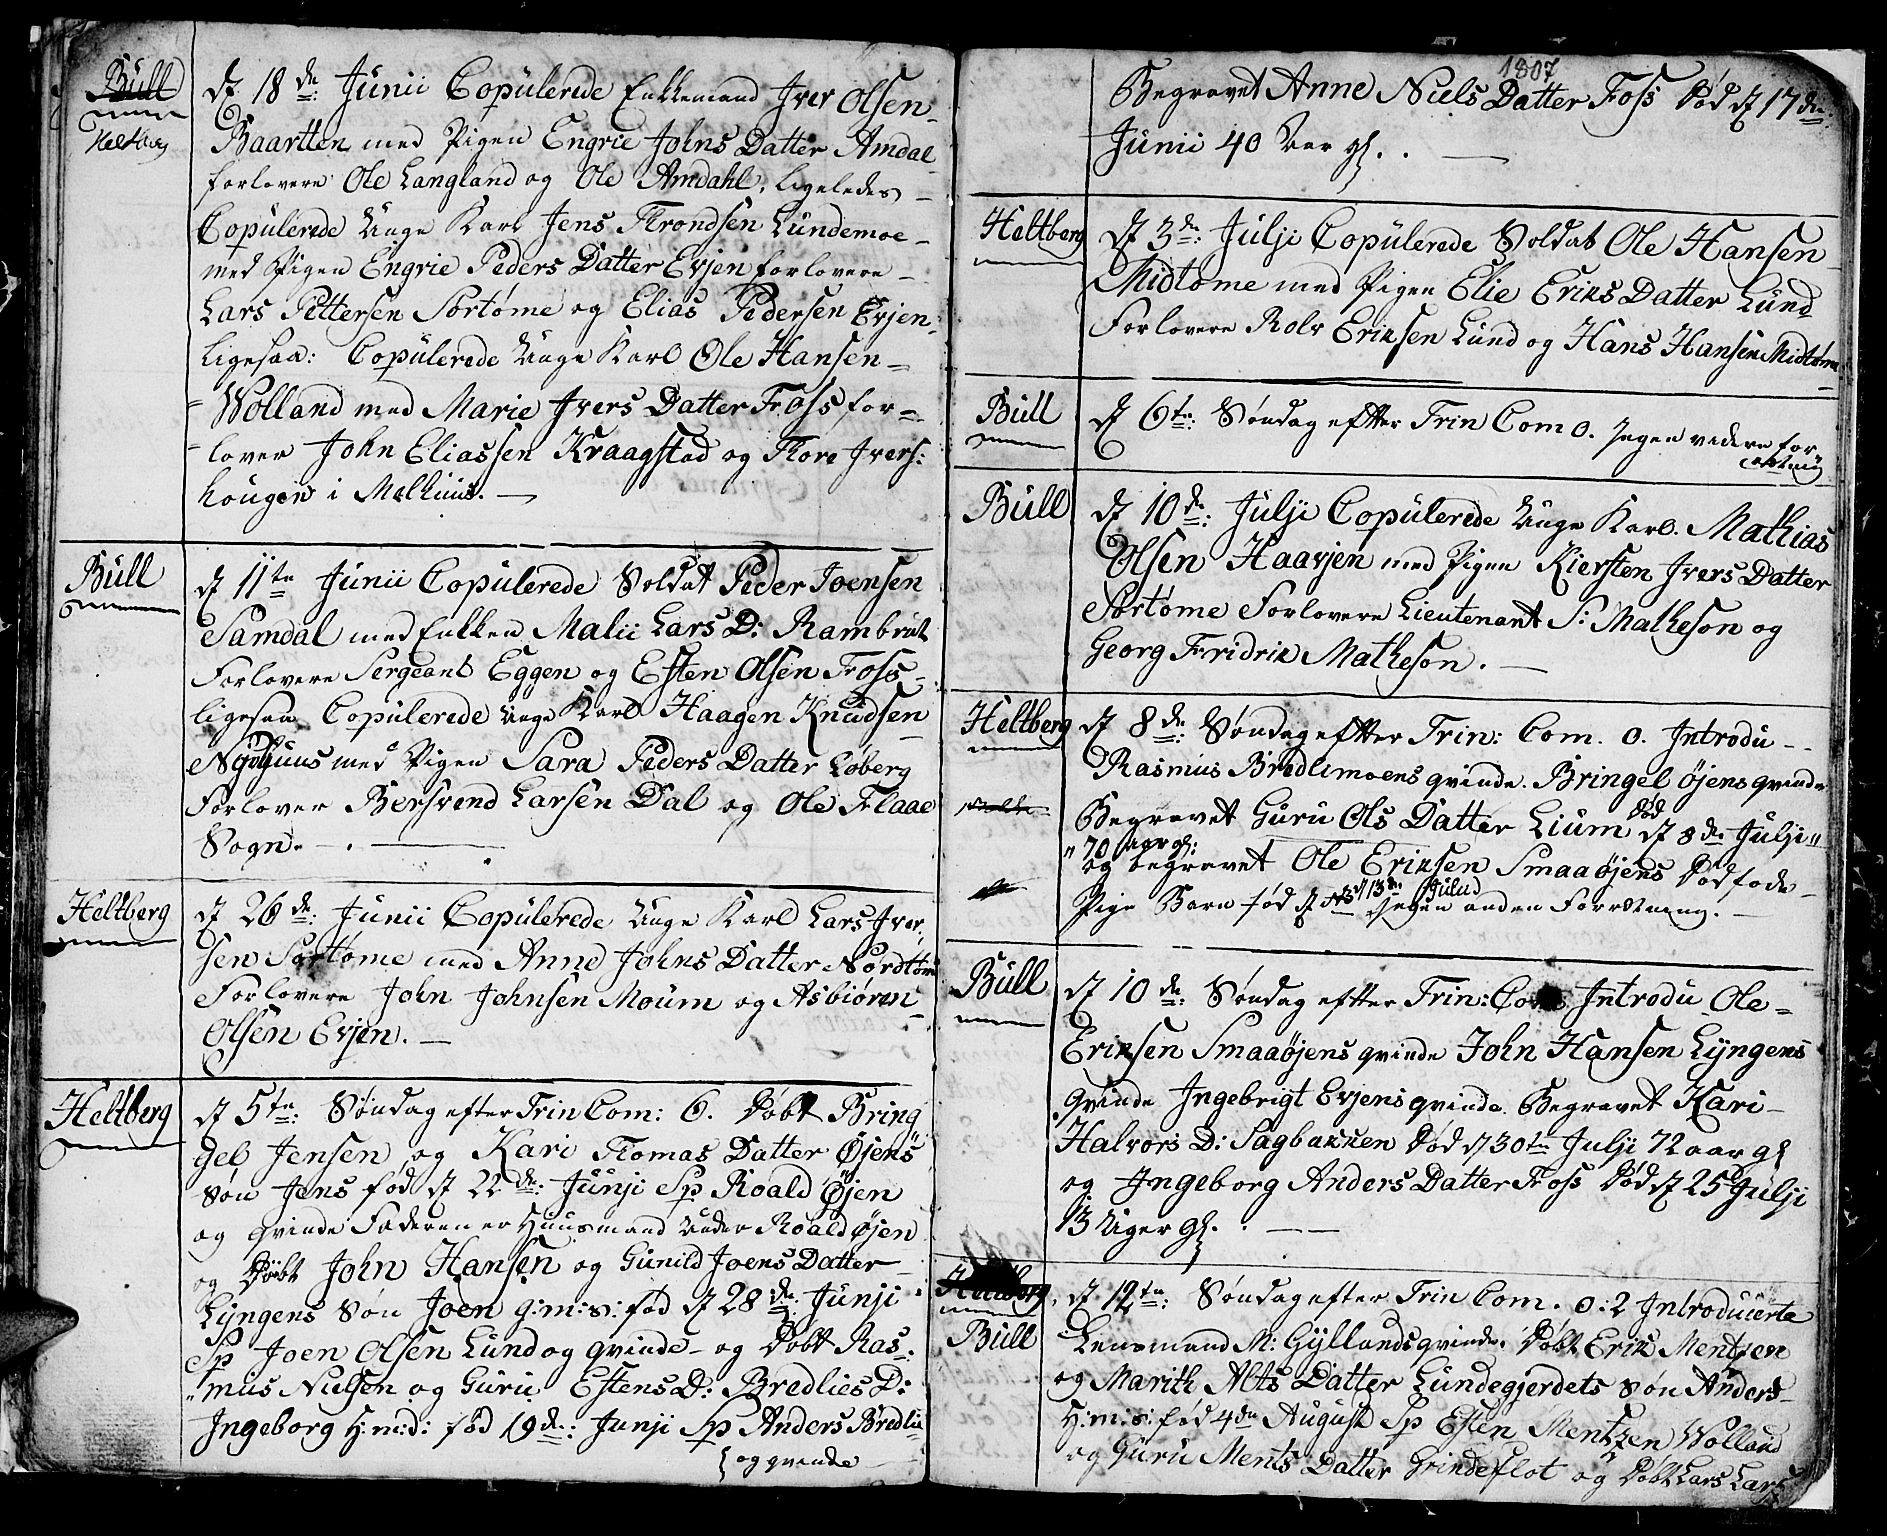 Bull
Heltberg
d 18de: Junii Copulerede Enkemand Iver Olsen
Baartten med Pigen Engrie Johns Datter Amdal
forlovere Ole Langland og Ole Amdahl, ligeledes
Copulerede Unge Karl Jens Trondsen Lundemoe
med Pigen Engrie Peders Datter Evjen forlovere
Lars Pettersen Sortøme og Elias Pedersen Evjen
Ligesaa: Copulerede Unge Karl Ole Hansen
Wolland med Marie Ivers Datter Foss for-
lover John Eliassen Kraagstad og Tore Ivers:
hougen i Melhuus.
Bull
d 11te Junii Copulerede Soldat Peder Joensen
Samdal med Enken Malii Lars D: Rambrut
Forlovere Sergeant Eggen og Esten Olsen Foss
ligesaa Copulerede Unge Karl Haagen Knudsen
Nyehuus med Pigen Sara Peders Datter Løberg
Forlover Bersvend Larsen Dal og Ole Flaae
Sogn.
Heltberg
d 26de: Junii Copulerede Unge Karl Lars Iver
sen Sortøme med Anne Johns Datter Nordtøme
Forlovere John Johnsen Moum og Asbiøren
Olsen Evjen.
Heltberg
d 5te: Søndag efter Trin Com: 6. Døbt Bring
gel Jensen og Kari Tomas Datter Øjens
Søn Jens fød d 22de: Junji Sp Roald Øjen
og qvinde Faderen er Huusmand under Roald Øjen
og Døbt John Hansen og Gunild Joens Datter
Lyngens Søn Joen g:m:s: fød d 28de: Junji
Sp Joen Olsen Lund og qvinde - og Døbt Ras-
mus Nielsen og Guru Estens D: Bredlies D:
Ingeborg H:m:d: fød 19de: Junji Sp Anders Bredlie
og qvinde
1807
Begravet Anne Niels Datter Foss Død d 17de
Junii 40 Aar gl.
Heltberg
d 3de: Julji Copulerede Soldat Ole Hansen
Midtøme med Pigen Elie Eriks Datter Lund
Forlovere Rolv Eriksen Lund og Hans Hansen Midtøme
Bull
d 6te: Søndag efter Trin Com 0. Ingen videre for
retning
Bull
d 10de: Julji Copulerede Unge Karl. Mathias
Olsen Haavjen med Pigen Kiersten Ivers Datter
Sortøme Forlovere Lieutenant S: Matheson og
Georg Fridrik Matheson.
Heltberg
d 8de: Søndag efter Trin: Com. 0. Introdu -
Rasmus Bredlimoens qvinde. Bringel Øjens qvinde
Begravet Guru Ols Datter Lium Død d 8de Julji
70 aar gl:
og begravet Ole Eriksen Smaaøjens Dødføde
Pige Barn fød d 13de Julii Ingen anden Forretning.
Bull
d 10de: Søndag efter Trin: Com Introdu Ole
Eriksen Smaaøjens qvinde John Hansen Lyngens
Qvinde Ingebrigt Evjens qvinde. Begravet Kari
Halvors D: Sagbakken Død d 30te Julji 72 aar gl
og Ingeborg Anders Datter Foss Død d 25 Julji
13 Uger gl.
Heltberg
Bull
d 12te: Søndag efter Trin Com. 0:2 Introducerte
Lensmand M: Gyllands qvinde. Døbt Erik Mentzen
og Marith Alts Datter Lundegjerdets Søn Anders
H:m:s: fød 4de August Sp Esten Mentzen Wolland
og Guru Ments Datter Grindeflot og Døbt Lars Lars